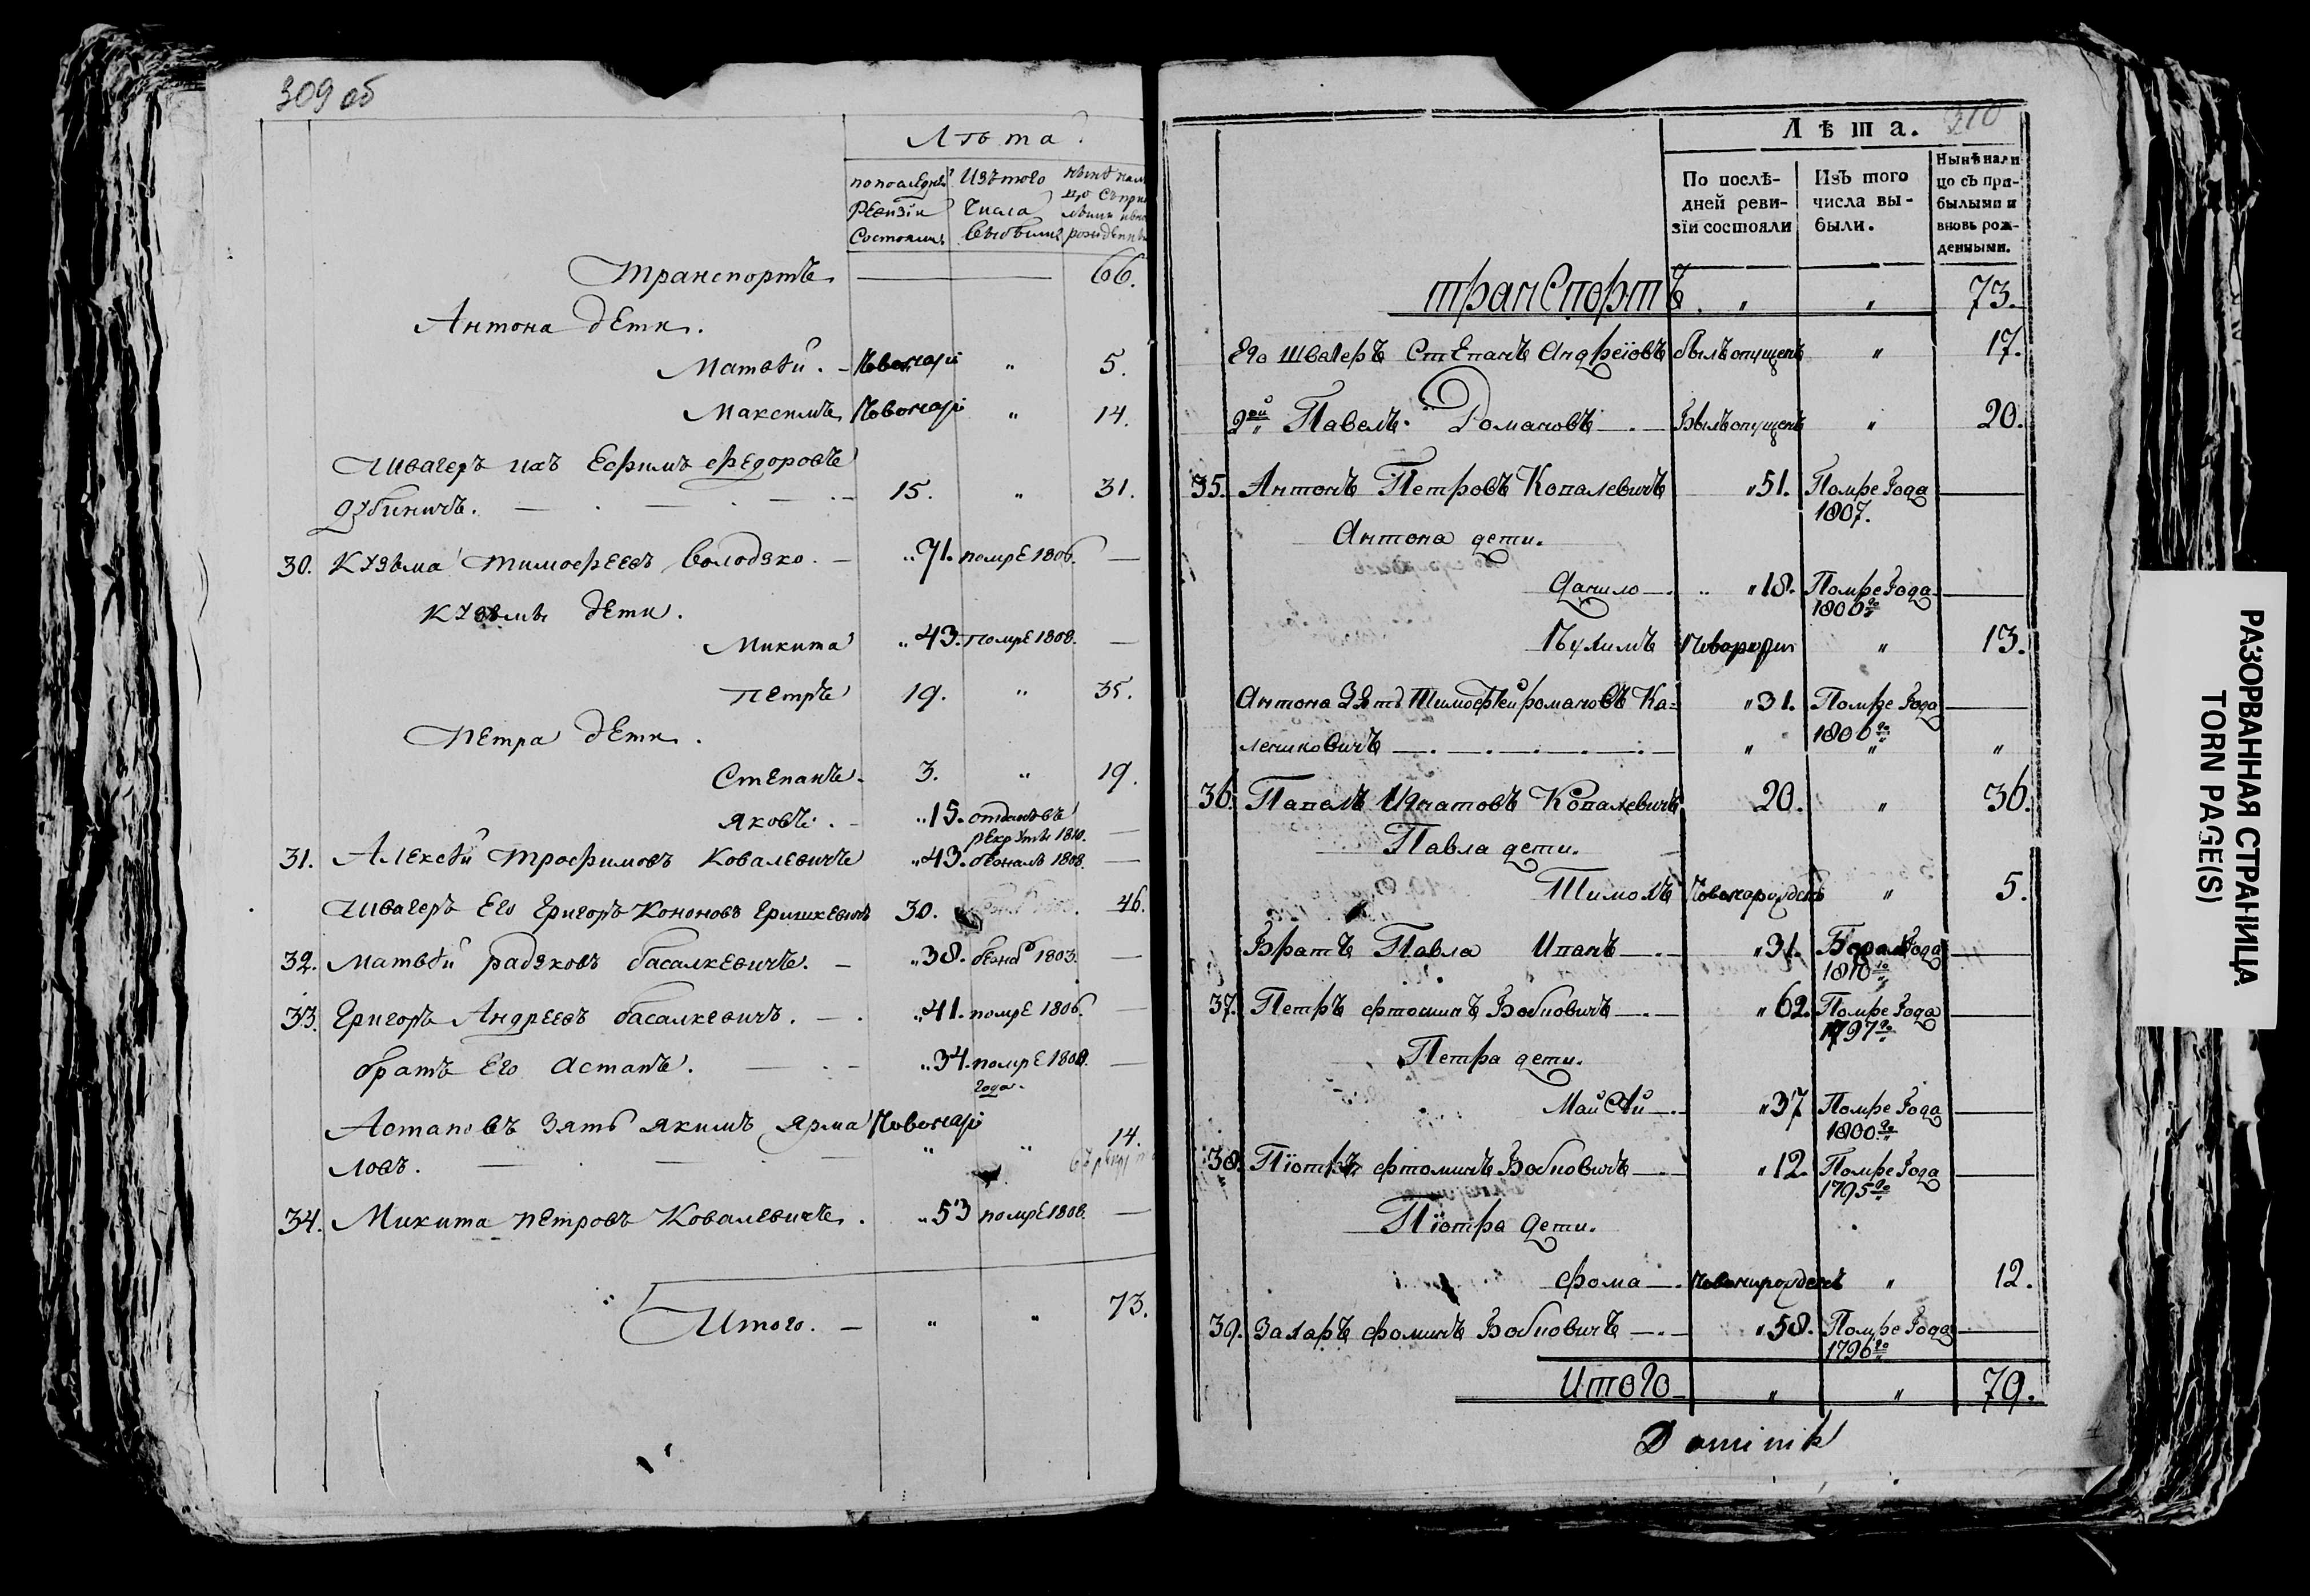 309 об
Лѣта
по последней Изъ того ныне нали
Ревизїи числа цо съ при
состояли выбыли рожденны
транспортъ 66.
Антона дети.
Матвѣй. - Новонар „ 5.
Максимъ Новонар „ 14.
Швагеръ ихъ Ефимъ Федоровъ
дубиничъ. 15. „ 31.
30. Кузьма Тимофеевъ Володзко. - „71. помре 1806. —
Кузьмы дети.
Микита „43. помре 1808. —
Петръ 19. „ 35.
Петра дети.
Степанъ. 3. „ 19.
Яковъ. - „15. отданъ въ
рекруты 1810. —
31. Алексѣй Трофимовъ Ковалевичъ „43. бежалъ 1808. —
Швагеръ Его Григоръ Кононовъ Гришкевичъ 30. 46.
32. Матвѣй радзковъ басалкевичъ. - „38. 1803. —
33. Григоръ Андреевъ басалкевичъ. - „41. помре 1806. —
братъ Его Астапъ. „34. помре 1808. —
года.
Астаповъ Зять якимъ ярма Новонар
ловъ. „ „ 14.
34. Микита Петровъ Ковалевичъ. „53 помре 1808. —
Итого. - „ „ 73.
310
Лѣта.
По послѣ- Изъ того Нынѣ нали
дней реви- числа вы- цо съ при-
зїи состояли были. былыми и
вновь рож-
денными.
транспортъ. „ „ 73.
Его швагеръ Степанъ Андреїовъ былъ опущенъ „ 17.
2ой Павелъ Романовъ былъ опущенъ „ 20.
35. Антонъ Петровъ Копалевичъ „51. Помре Года
1807.
Антона дети.
Данило „18. Помре Года
1806го
Новорож „ 13.
Антона Зять Тимофѣй романовъ Ка= „31. Помре Года
1806го
леникович „ „ „
36. Папелъ Игнатовъ Копалевичъ 20. „ 36.
Павла дети.
Новонарожденъ „ 5.
Братъ Павла Ипанъ „31. Года
1810го
37. Петръ фтоминъ Бобповичъ „62. Помре Года
1797го
Петра дети.
Майсѣй „37 Помре Года
1800го
38. Пїотръ фтоминъ Бобповичъ „12. Помре Года
1795го
Пїотра дети.
фома Новонарожденъ „ 12.
39. Захаръ фоминъ Бобповичъ „58. Помре Года
1796го
Итого „ „ 79.
Dominik
РАЗОРВАННАЯ СТРАНИЦА
TORN PAGE(S)